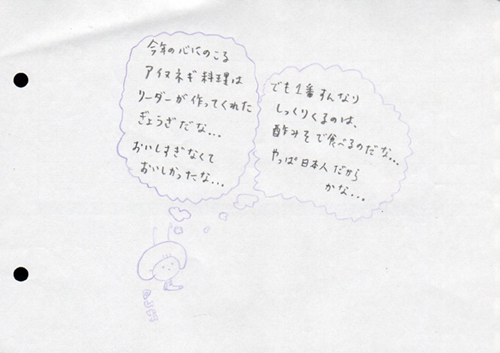 今年の心にのこる
アイヌネギ料理は
リーダーが作ってくれた
ぎょうざだな...
おいしすぎなくて
おいしかったな...
でも1番すんなり
しっくりくるのは、
酢みそで食べるのだな...
やっぱ日本人だから
かな...